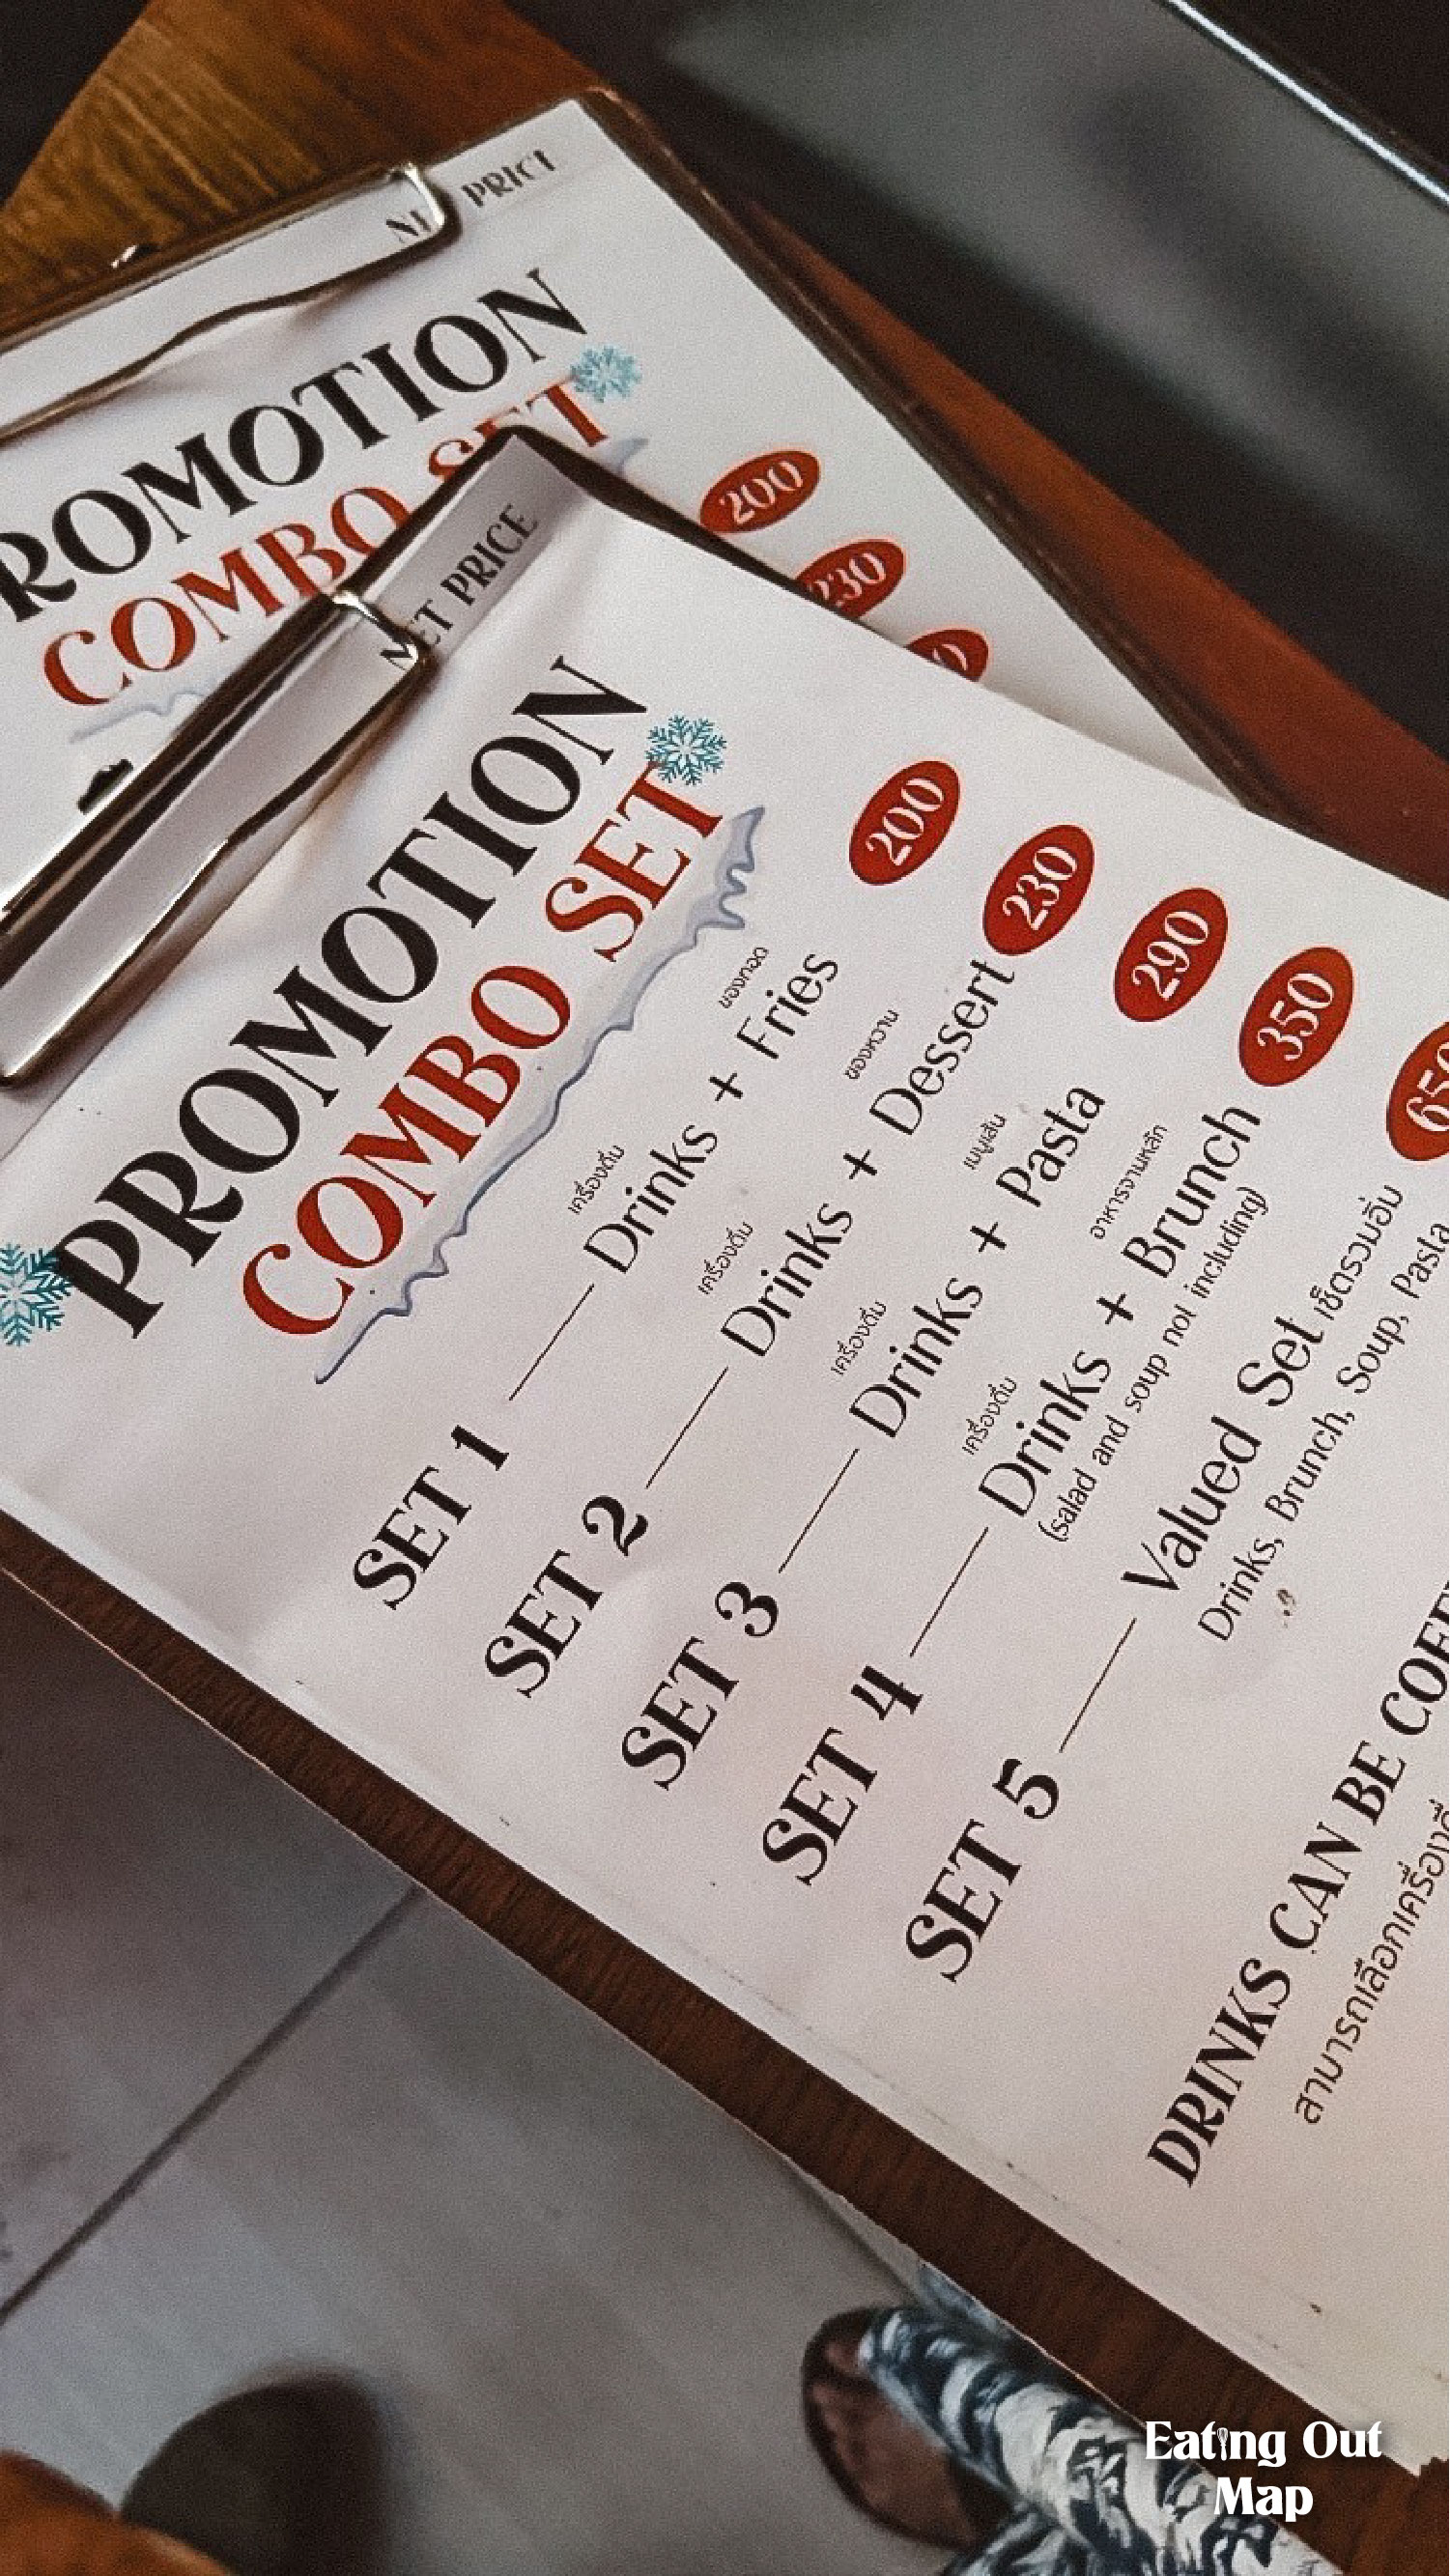 PRICE
ROMOTION
COMBO SET
200
230
NET PRICE
PROMOTION
COMBO SET
200
เครื่องดื่ม ของทอด
SET 1 Drinks + Fries
230
เครื่องดื่ม ของหวาน
SET 2 Drinks + Dessert
290
เครื่องดื่ม เมนูเส้น
SET 3 Drinks + Pasta
350
เครื่องดื่ม อาหารจานหลัก
SET 4 Drinks + Brunch
(salad and soup not including)
650
SET 5 Valued Set เซ็ตรวมอิ่ม
Drinks, Brunch, Soup, Pasta
DRINKS CAN BE
สามารถเลือกเครื่องดื่
Eating Out
Map